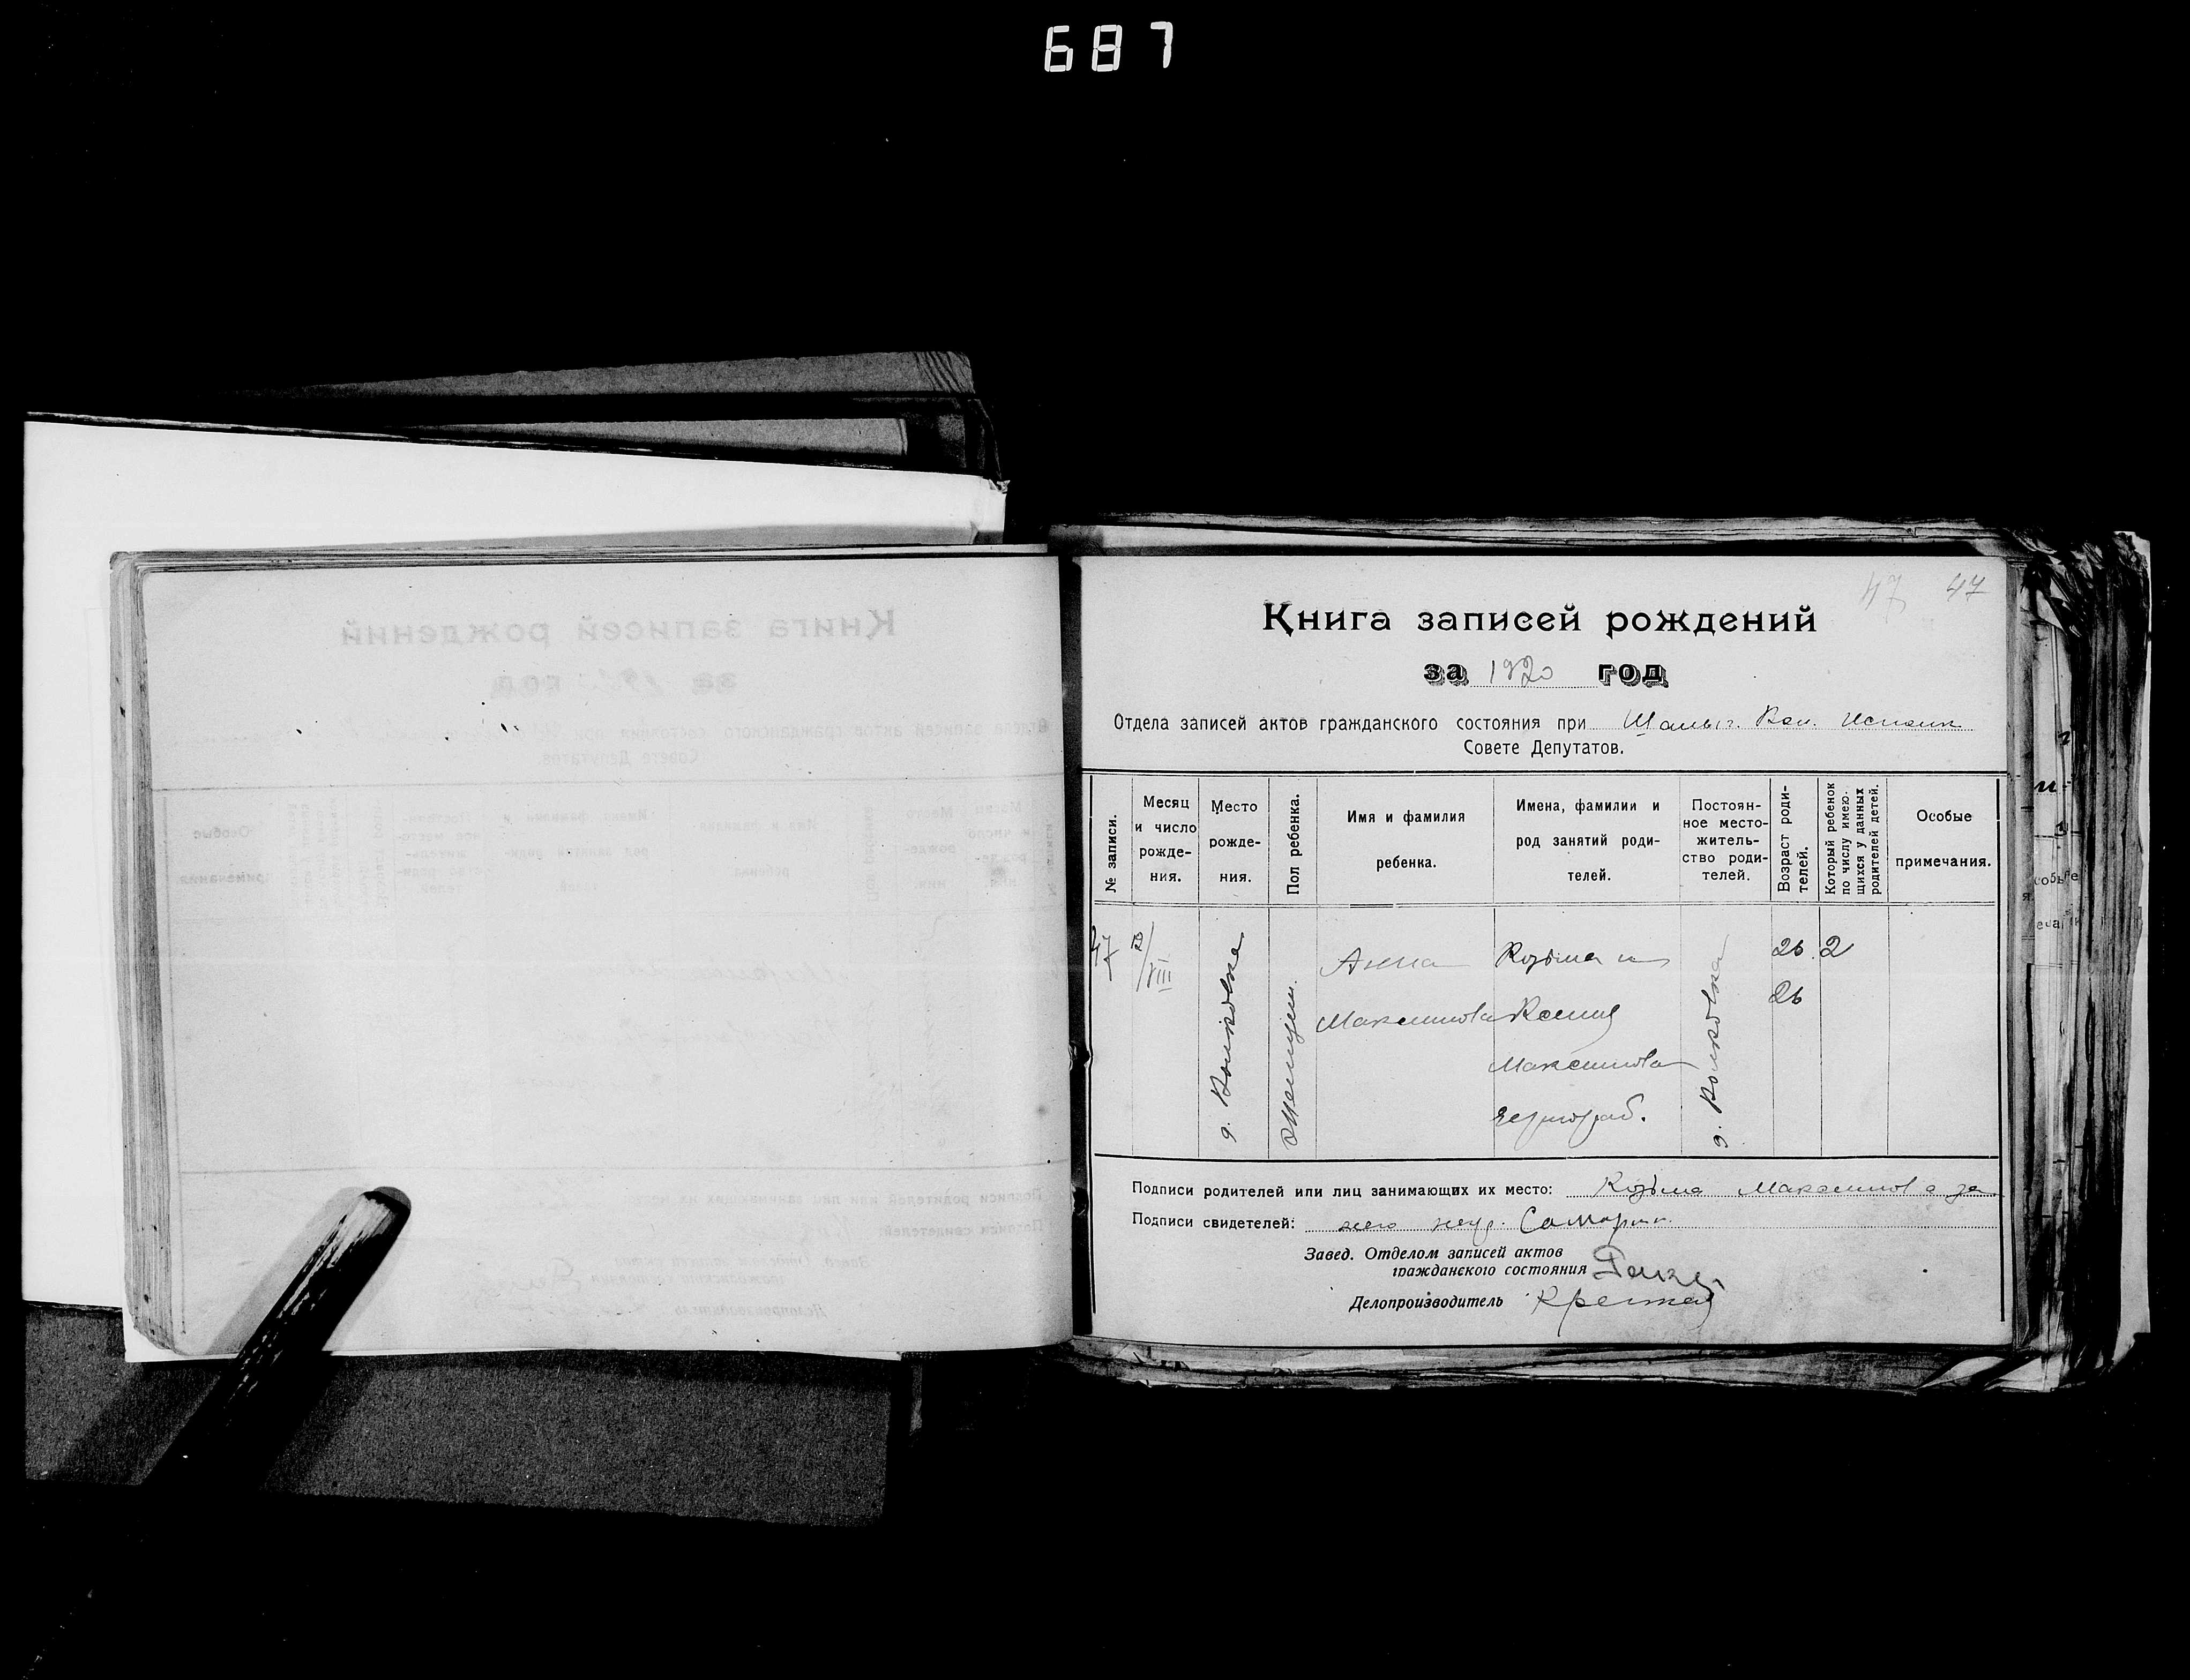 687
47 47
Книга записей рождений
за 1920 год
Отдела записей актов гражданского состояния при Шалыг. Вол. Исполк
Совете Депутатов.
№ записи.
Месяц и число рожде- ния.
Место рожде- ния.
Пол ребенка.
Имя и фамилия ребенка.
Имена, фамилии и род занятий роди- телей.
Постоян- ное место- житель- ство роди- телей.
Возраст роди- телей.
Который ребенок по числу имею- щихся у данных родителей детей.
Особые примечания.
47
/VIII
д. Волковка
Женщин.
Анна
Максимова
Козьма и
Ксения
Максимова
д. Волковка
26
26
2
Подписи родителей или лиц занимающих их место: Козьма Максимов а за
Подписи свидетелей: него неур.
Завед. Отделом записей актов
гражданского состояния
Делопроизводитель